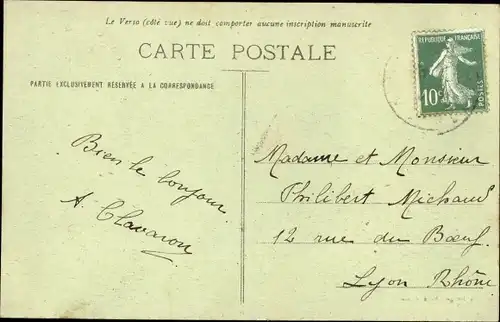 Le Verso (côté vue) ne doit comporter aucune inscription manuscrite
CARTE POSTALE
PARTIE EXCLUSIVEMENT RÉSERVÉE A LA CORRESPONDANCE
RÉPUBLIQUE FRANÇAISE
10c
POSTES
Bien le bonjour
A. Clavaron
Madame et Monsieur
Philibert Michaud
12 rue du Bœuf
Lyon Rhône